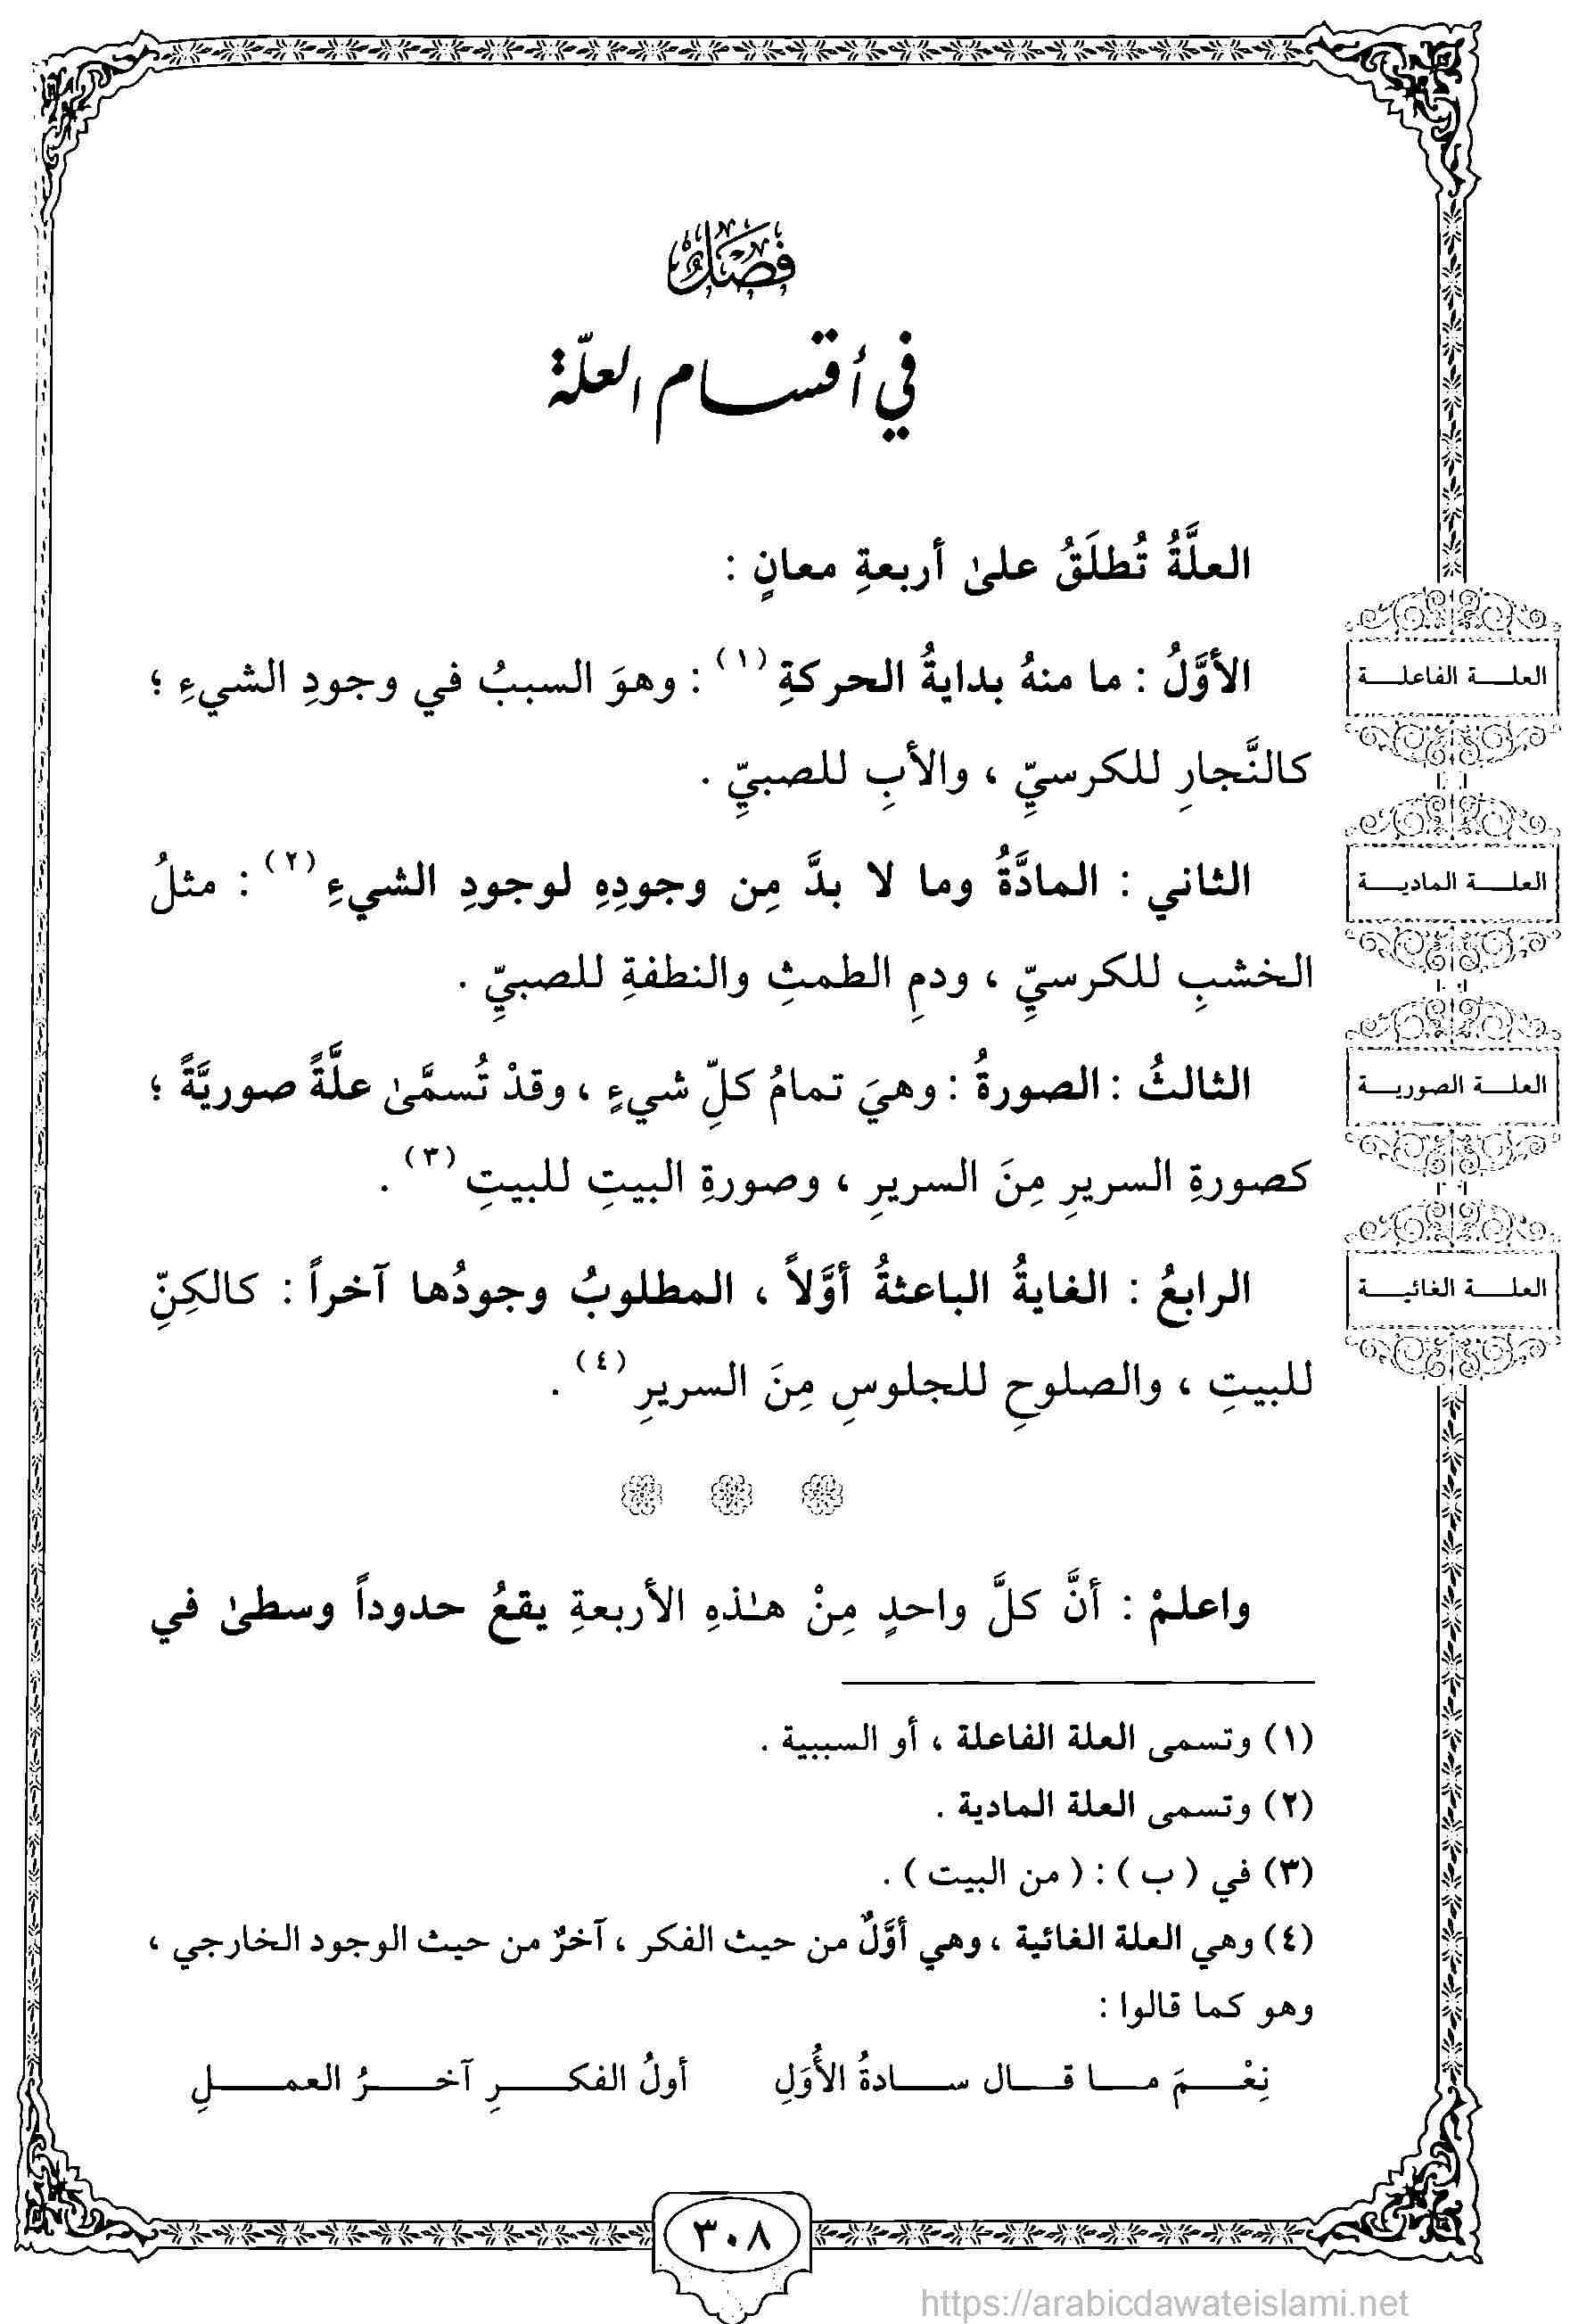 فَصْلٌ
في أقسام العلّة
العلَّةُ تُطلَقُ علىٰ أربعةِ معانٍ :
الأوَّلُ : ما منهُ بدايةُ الحركةِ (١) : وهوَ السببُ في وجودِ الشيءِ ؛
العلة الفاعلة
كالنَّجارِ للكرسيِّ ، والأبِ للصبيِّ .
الثاني : المادَّةُ وما لا بدَّ مِن وجودِهِ لوجودِ الشيءِ (٢) : مثلُ
العلة المادية
الخشبِ للكرسيِّ ، ودمِ الطمثِ والنطفةِ للصبيِّ .
الثالثُ : الصورةُ : وهيَ تمامُ كلِّ شيءٍ ، وقدْ تُسمَّىٰ علَّةً صوريَّةً ؛
العلة الصورية
كصورةِ السريرِ مِنَ السريرِ ، وصورةِ البيتِ للبيتِ (٣) .
الرابعُ : الغايةُ الباعثةُ أوَّلاً ، المطلوبُ وجودُها آخراً : كالكِنِّ
العلة الغائية
للبيتِ ، والصلوحِ للجلوسِ مِنَ السريرِ (٤) .
واعلمْ : أنَّ كلَّ واحدٍ مِنْ هـٰذهِ الأربعةِ يقعُ حدوداً وسطىٰ في
(١) وتسمى العلة الفاعلة ، أو السببية .
(٢) وتسمى العلة المادية .
(٣) في ( ب ) : ( من البيت ) .
(٤) وهي العلة الغائية ، وهي أوَّلٌ من حيث الفكر ، آخرٌ من حيث الوجود الخارجي ،
وهو كما قالوا :
نِعْمَ ما قال سادةُ الأُوَلِ أولُ الفكرِ آخرُ العملِ
٣٠٨
https://arabicdawateislami.net